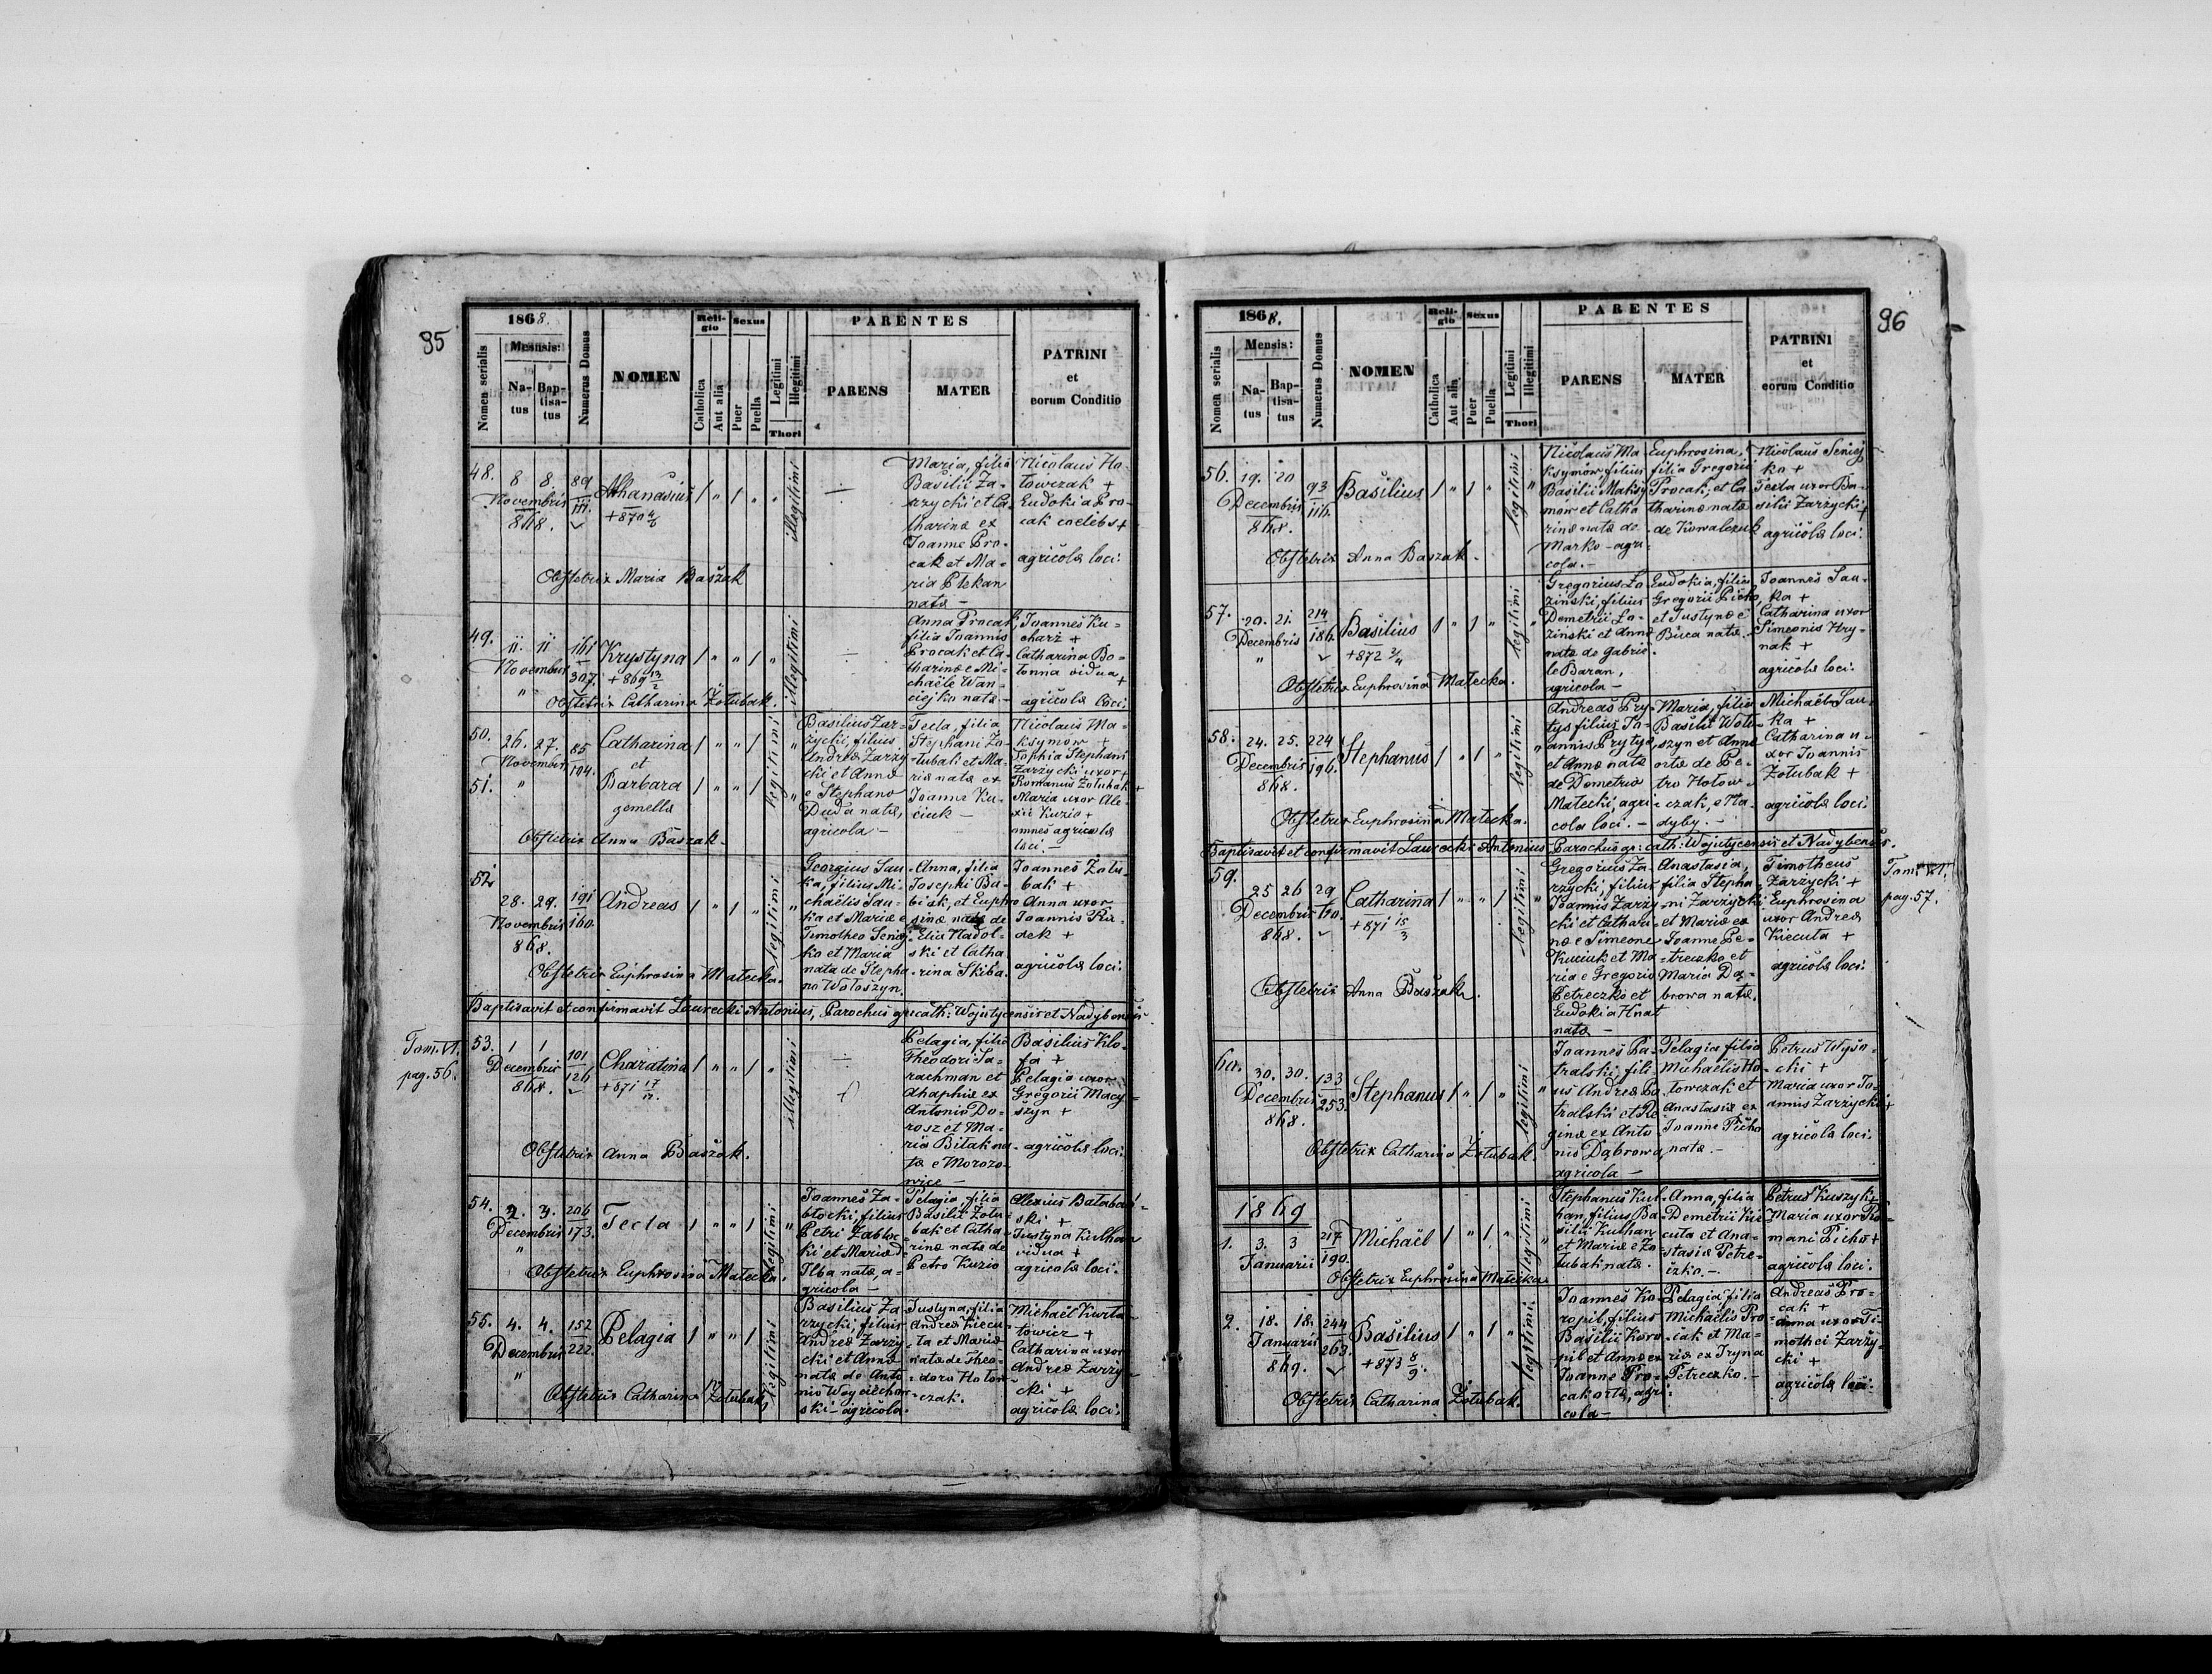 95
1868.
Nomen serialis
Mensis:
Na-
tus
Bap-
tisa-
tus
Numerus Domus
NOMEN
Reli-
gio
Catholica
Aut alia
Sexus
Puer
Puella
Legitimi
Illegitimi
Thori
PARENTES
PARENS
MATER
PATRINI
et
eorum Conditio
48. 8 8. 89
Novembris 111.
868.
Athanasius
+870
illegitimi
Maria, filia
Basilii Za-
rzycki et Ca-
tharinæ ex
Joanne Pro-
cak et Ma-
ria Plekan
natæ -
Nicolaus Ho-
towczak +
Eudokia Pro-
cak coelebs +
agricolæ loci.
Obstetrix Maria Baszak
49. 11. 11 161
Novembris 307.
"
Krystyna
+869 13/2
illegitimi
Anna Procak,
filia Joannis
Procak et Ca-
tharinæ e Mi-
chaële Wan-
ciejko natæ -
Joannes Ku-
charz +
Catharina Bo-
tonna vidua +
agricolæ loci.
Obstetrix Catharina Żołubak.
50. 26. 27. 85
Novembris 104.
51. "
Catharina
et
Barbara
gemellæ
legitimi
Basilius Zar-
zycki, filius
Andreæ Zarzy-
cki et Annæ
e Stephano
Duda natæ,
agricola -
Tecla, filia
Stephani Żo-
łubak et Ma-
riæ natæ ex
Joanne Ku-
ciuk -
Nicolaus Ma-
ksymów +
Sophia Stephani
Zarzycki uxor +
Romanus Żołubak +
Maria uxor Ale-
xii Kuzio +
omnes agricolæ
loci. -
Obstetrix Anna Baszak
52.
28. 29. 191
Novembris 160.
868.
Andreas
legitimi
Georgius Sau-
ka, filius Mi-
chaelis Sau-
ka et Mariæ e
Timotheo Seniej-
ko et Maria
nata de Stepha-
no Wołoszyn.
Anna, filia
Josephi Ba-
biak, et Euphro-
sinæ natæ de
Elia Nadol-
ski et Catha-
rina Skiba.
Joannes Żołu-
bak +
Anna uxor
Joannis Ru-
dek +
agricolæ loci.
Obstetrix Euphrosina Małecka.
Baptisavit et confirmavit Laurecki Antonius, Parochus gr. cath: Wojutycensis et Nadybensis
Tom. VI.
pag. 56.
53. 1 1 101
Decembris 126
868.
Charatina
+871 17/12.
illegitimi
Pelagia, filia
Theodori Ta-
rachman et
Ahaphiæ ex
Antonio Do-
rosz et Ma-
ria Bitak na-
ta e Morozo-
wice -
Basilius Klo-
fa +
Pelagia uxor
Gregorii Macy-
szyn +
agricolæ loci.
Obstetrix Anna Baszak.
54. 2. 3. 206
Decembris 173.
"
Tecla
legitimi
Joannes Za-
błocki, filius
Petri Zabłoc-
ki et Mariæ d
Ilba natæ, a-
gricola -
Pelagia, filia
Basilii Żołu-
bak et Catha-
rinæ natæ de
Petro Kuzio
Alexius Bałaban-
ski +
Justyna Kulhan
vidua +
agricolæ loci.
Obstetrix Euphrosina Małecka.
55. 4. 4. 152
Decembris 222.
"
Pelagia
legitimi
Basilius Za-
rzycki, filius
Andreæ Zarzy-
cki et Annæ
natæ de Anto-
nio Woyciechow-
ski - agricola.
Justyna, filia
Andreæ Kiecu-
ta et Mariæ
natæ de Theo-
doro Hołow-
czak.
Michaël Kurta-
towicz +
Catharina uxor
Andreæ Zarzy-
cki +
agricolæ loci.
Obstetrix Catharina Żołubak
96
1868.
Nomen serialis
Mensis:
Na-
tus
Bap-
tisa-
tus
Numerus Domus
NOMEN
Reli-
gio
Catholica
Aut alia
Sexus
Puer
Puella
Legitimi
Illegitimi
Thori
PARENTES
PARENS
MATER
PATRINI
et
eorum Conditio
56. 19. 20 93
Decembris 116.
868.
Basilius
legitimi
Nicolaus Ma-
ksymów, filius
Basilii Maksy-
mow et Catha-
rinæ natæ de
Marko - agri-
cola. -
Euphrosina,
filia Gregorii
Procak, et Ca-
tharinæ natæ
de Kowalczuk
Nicolaus Seniej-
ko +
Tekla uxor Ba-
silii Zarzycki +
agricolæ loci.
Obstetrix Anna Baszak.
57. 20. 21. 214
Decembris 186.
"
Basilius
+872 2/4
legitimi
Gregorius Ło-
ziński, filius
Demetrii Ło-
zinski et Annæ
natæ de Gabrie-
le Baran,
agricola -
Eudokia, filia
Gregorii Picho,
et Justynæ e
Buca natæ.
Joannes Sau-
ka +
Catharina uxor
Simeonis Hry-
nak +
agricolæ loci.
Obstetrix Euphrosina Małecka.
58. 24. 25. 224
Decembris 196.
868.
Stephanus
legitimi
Andreas Pry-
tys filius Jo-
annis Prytys,
et Annæ natæ
de Demetrio
Małecki, agri-
cola loci. -
Maria, filia
Basilii Woło-
szyn et Annæ
ortæ de Pe-
tro Hołow-
czak, e Ha-
dyby. -
Michaël Sau-
ka +
Catharina u-
xor Joannis
Żołubak +
agricolæ loci.
Obstetrix Euphrosina Małecka.
Baptisavit et confirmavit Laurecki Antonius Parochus gr: cath: Wojutycensis et Nadybensis.
59.
25 26 29
Decembris 60.
868.
Catharina
+871 15/3
legitimi
Gregorius Za-
rzycki, filius
Joannis Zarzy-
cki et Cathari-
næ e Simeone
Kuciuk et Ma-
ria e Gregorio
Petreczko et
Eudokia Hnat
natæ -
Anastasia,
filia Stepha-
ni Zarzycki
et Mariæ ex
Joanne Pe-
treczko et
Maria Dą-
browa natæ.
Timotheus
Zarzycki +
Euphrosina
uxor Andreæ
Kiecuta +
agricolæ loci.
Tom. VI.
pag. 57.
Obstetrix Anna Baszak.
60. 30. 30. 133
Decembris 253.
868.
Stephanus
legitimi
Joannes Pa-
tralski, fili-
us Andreæ Pa-
tralski et Re-
ginæ ex Anto-
nio Dąbrowa,
agricola -
Pelagia filia
Michaëlis Ho-
towczak et
Anastasiæ ex
Joanne Picho
natæ. -
Petrus Wyso-
cki +
Maria uxor Jo-
annis Zarzycki +
agricolæ loci.
Obstetrix Catharina Żołubak.
1869
1. 3. 3 217
Januarii 190.
Michaël
legitimi
Stephanus Kul-
han, filius Ba-
silii Kulhan
et Mariæ e Żo-
łubak natæ.
Anna, filia
Demetrii Kie-
cuta et Ana-
stasiæ Petre-
czko. -
Petrus Kuszyk +
Maria uxor Ro-
mani Picho +
agricolæ loci.
Obstetrix Euphrosina Małecka
2. 18. 18. 244
Januarii 263.
869.
Basilius
+873 8/9.
legitimi.
Joannes Ko-
ropil, filius
Basilii Koro-
pil et Annæ ex
Joanne Pro-
cak ortæ, agri-
cola -
Pelagia filia
Michaëlis Pro-
cak et Ma-
riæ ex Tryna
Petreczko. -
Andreas Pro-
cak +
Anna uxor Ti-
mothei Zarzy-
cki +
agricolæ loci.
Obstetrix Catharina Żołubak.